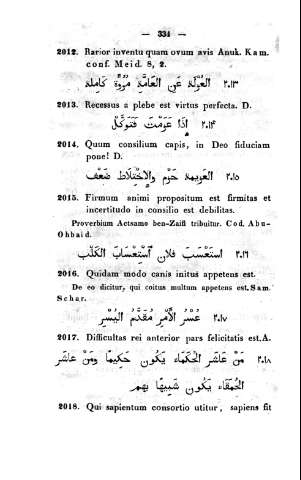 — 334 —
2012. Rarior inventu quam ovum avis Anuk. Kam.
conf. Meid. 8, 2.
٢٠١٣ العُزْلَة عَنِ العَامَّةِ مُرُوَّة كَامِلَة
2013. Recessus a plebe est virtus perfecta. D.
٢٠١۴ إِذَا عَزَمْتَ فَتَوَكَّلْ
2014. Quum consilium capis, in Deo fiduciam
pone! D.
٢٠١٥ العَزِيمَة حَزْم والاِخْتِلَاط ضَعْف
2015. Firmum animi propositum est firmitas et
incertitudo in consilio est debilitas.
Proverbium Actsamo ben-Zaifi tribuitur. Cod. Abu-
Obbaid.
٢٠١٦ اسْتَعْسَبَ فلان اسْتِعْسَابَ الكَلْب
2016. Quidam modo canis initus appetens est.
De eo dicitur, qui coitus multum appetens est. Sam.
Schar.
٢٠١٧ عُسْرُ الأَمْرِ مُقَدَّمُ اليُسْرِ
2017. Difficultas rei anterior pars felicitatis est. A.
٢٠١٨ مَنْ عَاشَرَ الحُكَمَاء يَكُون حَكِيمًا ومَنْ عَاشَر
الحُمَقَاء يَكُون شَبِيهًا بِهِم
2018. Qui sapientum consortio utitur, sapiens fit